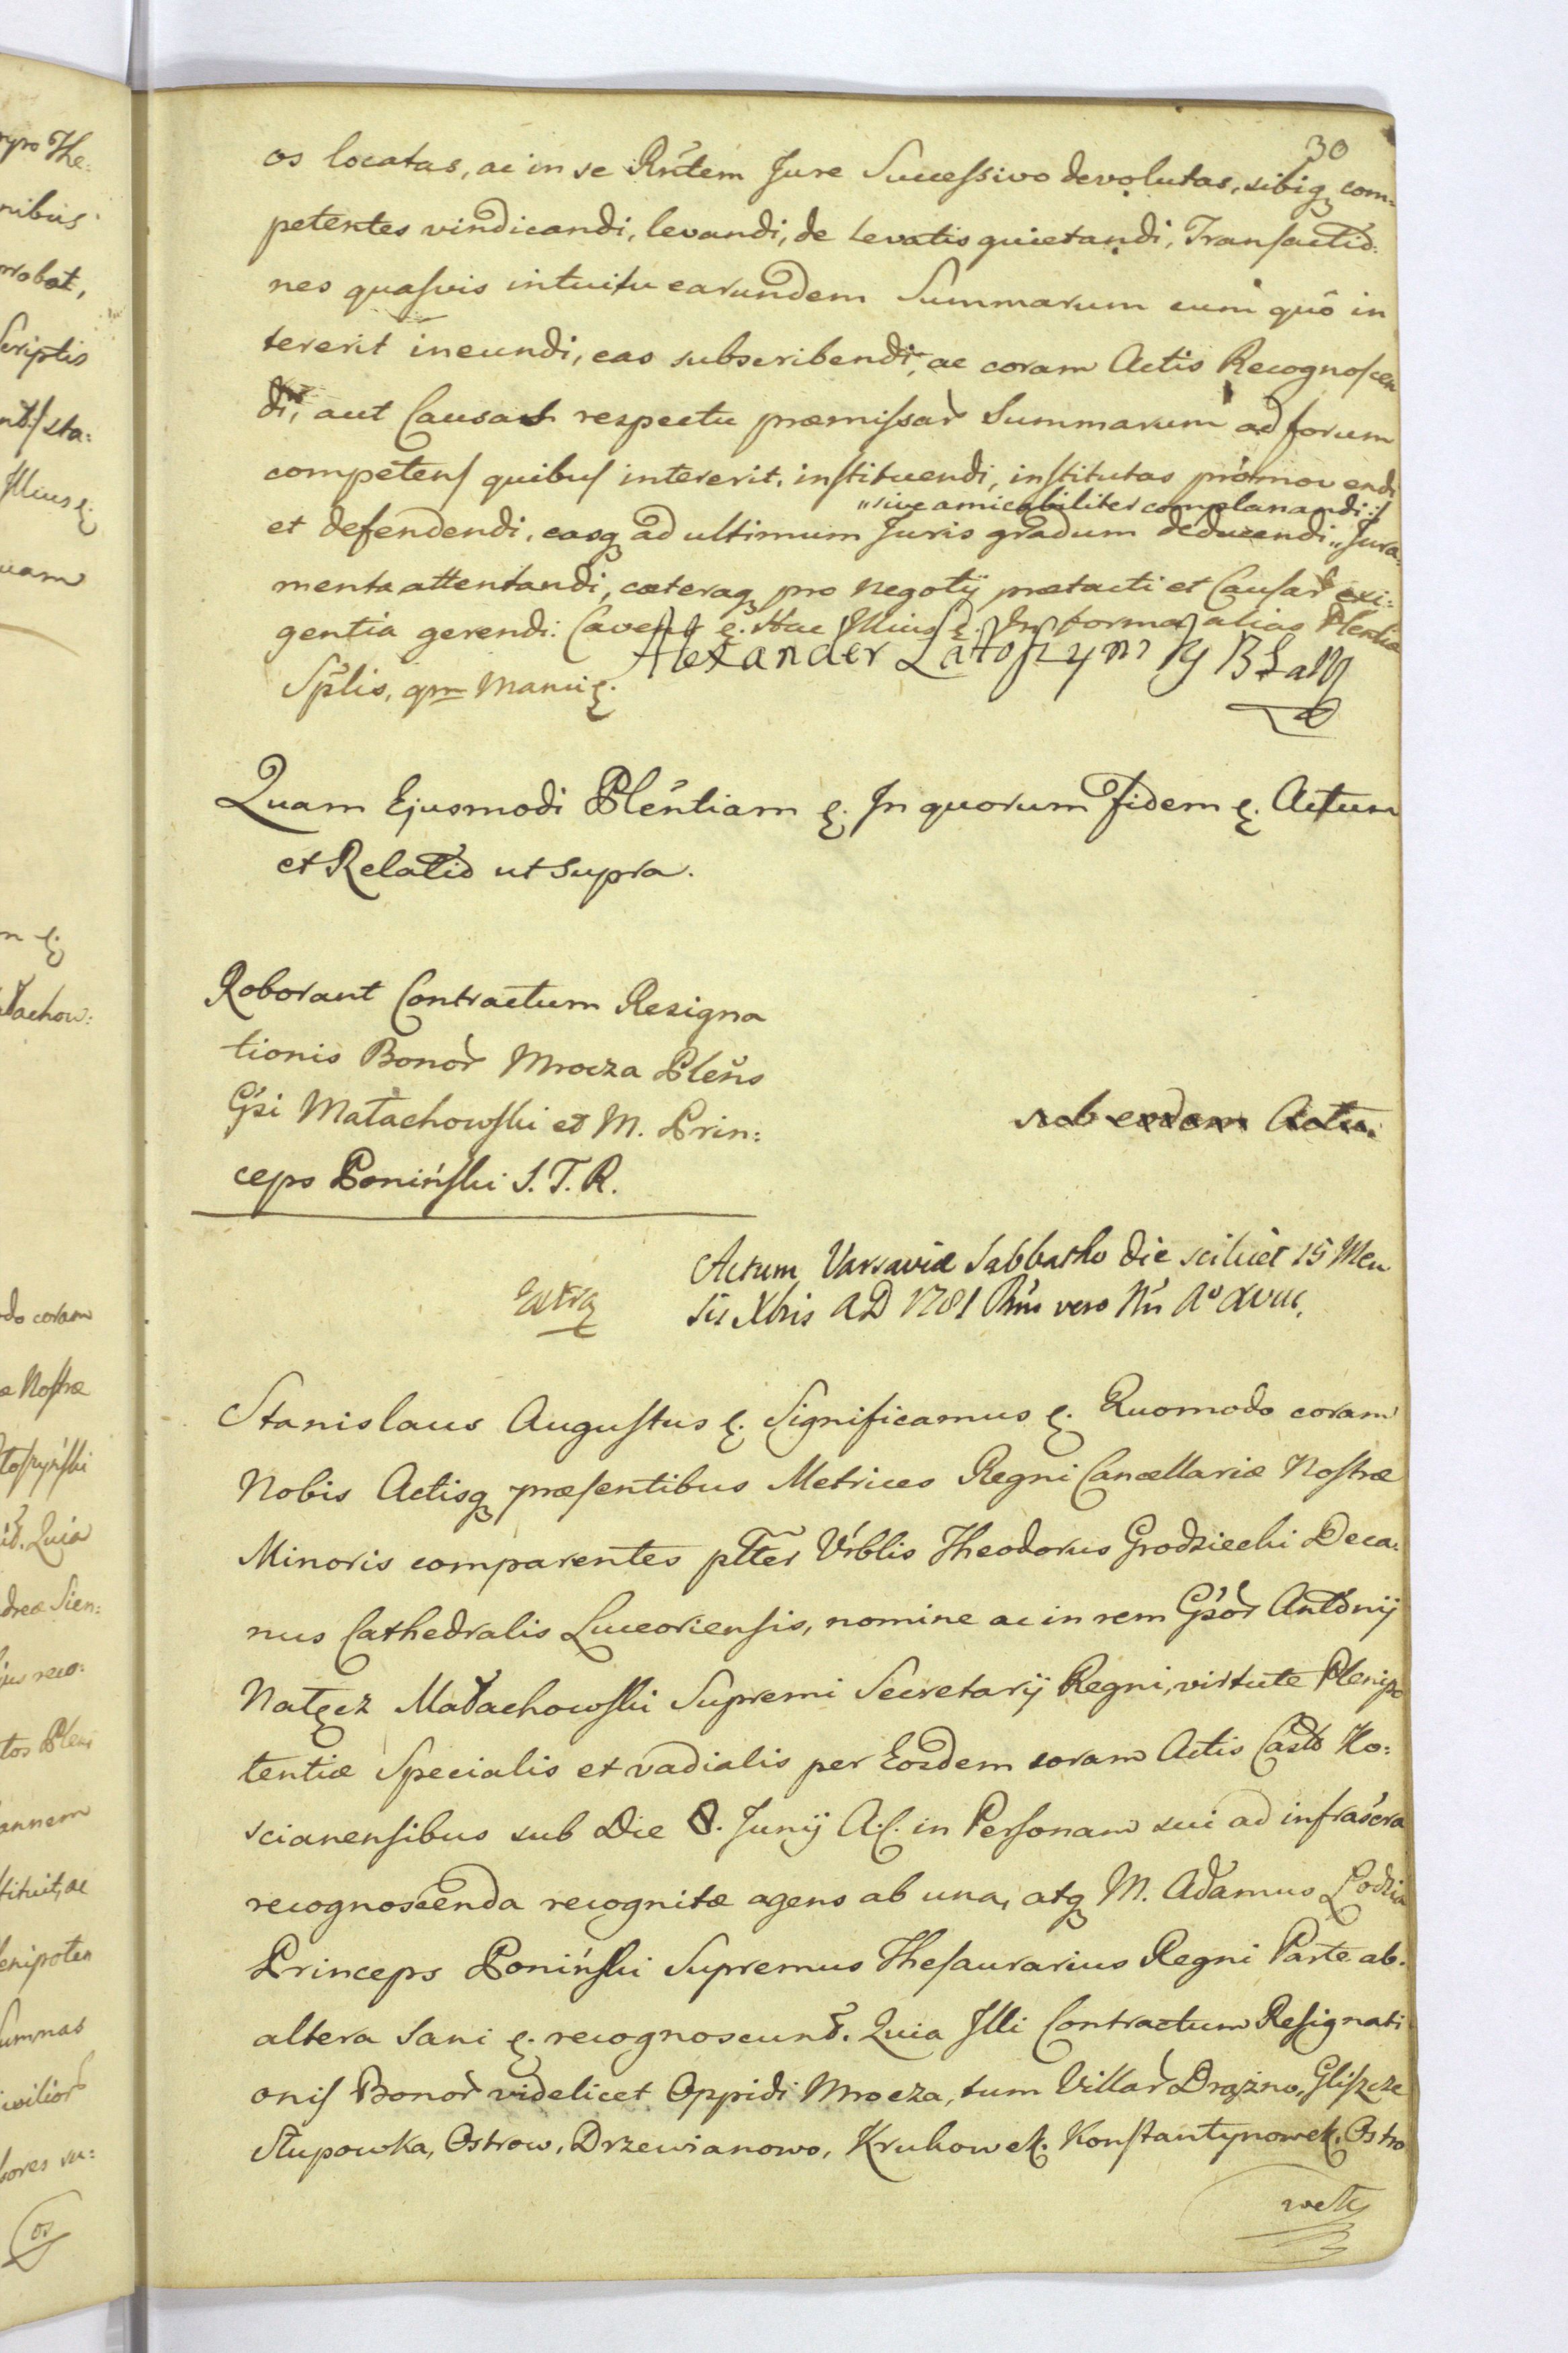 30
os locatas, ac in se Rńtem Jure Successivo devolutas, sibiq com=
petentes vindicandi, levandi, de Levatis quietandi, Transactio=
nes quasvis intuitu earundem Summarum cum quô in
tererit ineundi, eas subscribendi, ac coram Actis Recognoscen
di, aut Causas respectu præmissar Summarum ad forum
competens quibus intererit, instituendi, institutas promovendi
„sive amicabiliter complanandi:/
et defendendi, easq ad ultimum Juris gradum deducendi „Jura=
menta attentandi, cæteraq pro Negotij prætacti et Causar exi=
gentia gerendi: Cavens &. Hac Illius &. In forma alias Plentia
Splis, qm Manu &. Alexander Łatoszynsky
Quam Ejusmodi Plentiam &. In quorum fidem &. Actum
et Relatio ut supra.
Roborant Contractum Resigna
tionis Bonor Mrocza Pleńs
Gsi Małachowski et M. Prin=
ceps Poniński S. T. R.
sub eodem Actu.
Extra
Actum Varsaviæ Sabbatho die scilicet 15 Men
sis Xbris A D 1781 Rńi vero Nri Aº XVIII.
Stanislaus Augustus &. Significamus &. Quomodo coram
Nobis Actisq præsentibus Metrices Regni Cancellariæ Nostræ
Minoris comparentes pltter Vrblis Theodorus Grodziecki Deca=
nus Cathedralis Luceoriensis, nomine ac in rem Gsor Antonij
Nałęcz Małachowski Supremi Secretarij Regni, virtute Plenipo
tentiæ Specialis et vadialis per Eosdem coram Actis Castr Ko=
scianensibus sub Die 8. Junij A. C. in Personam sui ad infrascra
recognoscenda recognitæ agens ab una, atq M. Adamus Łodzia
Princeps Poniński Supremus Thesaurarius Regni Parte ab
altera Sani &. recognoscunt. Quia Illi Contractum Resignati
onis Bonor videlicet Oppidi Mrocza, tum Villar Drążno, Gliszcze
Słupowka, Ostrow, Drzewianowo, Krukowek, Konstantynowek, Ostro
wek